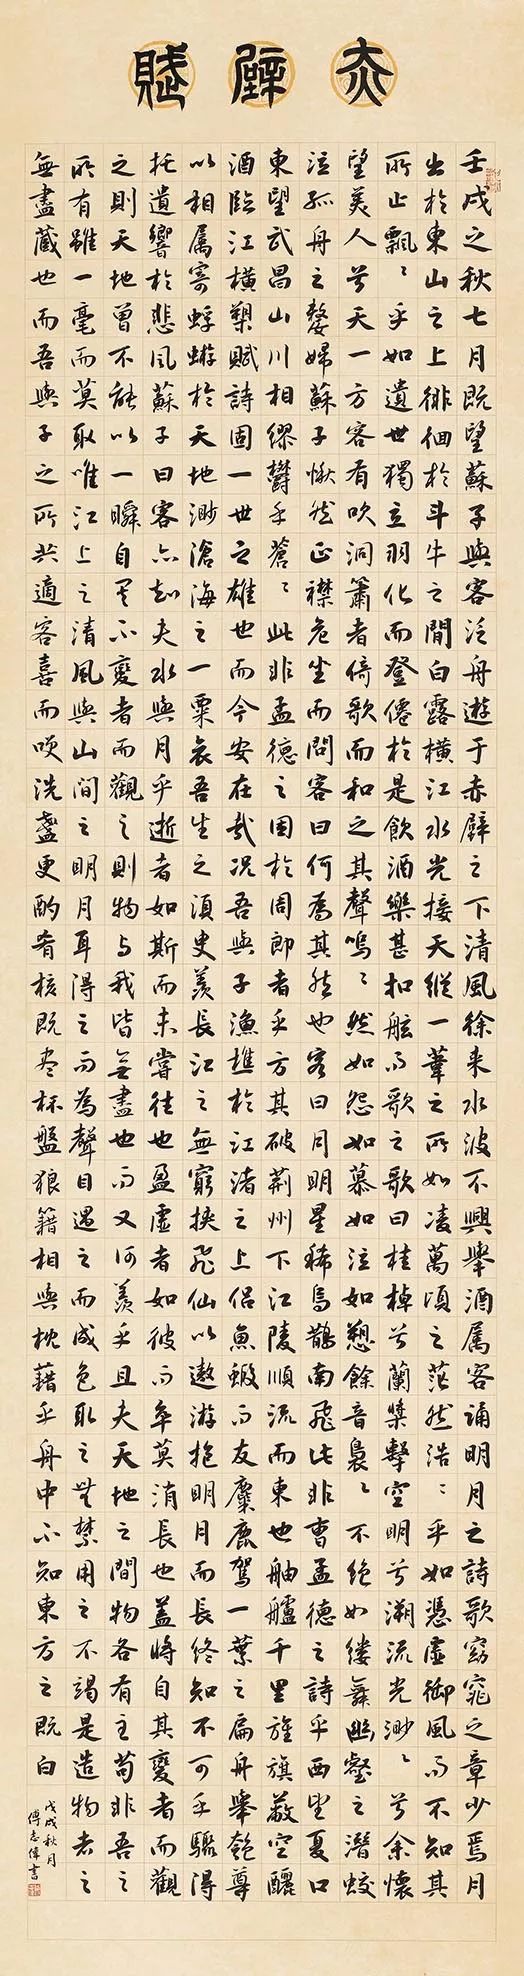 赤壁賦
壬戌之秋七月既望蘇子與客泛舟遊于赤壁之下清風徐来水波不興舉酒属客誦明月之詩歌窈窕之章少焉月
出於東山之上徘徊於斗牛之間白露橫江水光接天縱一葦之所如凌萬頃之茫然浩〻乎如憑虛御風而不知其
所止飄〻乎如遺世獨立羽化而登僊於是飲酒樂甚扣舷而歌之歌曰桂棹兮蘭槳擊空明兮溯流光渺〻兮余懷
望美人兮天一方客有吹洞簫者倚歌而和之其聲嗚〻然如怨如慕如泣如愬餘音裊〻不絕如縷舞幽壑之潛蛟
泣孤舟之嫠婦蘇子愀然正襟危坐而問客曰何為其然也客曰月明星稀烏鵲南飛此非曹孟德之詩乎西望夏口
東望武昌山川相繆鬱乎蒼〻此非孟德之困於周郎者乎方其破荊州下江陵順流而東也舳艫千里旌旗蔽空釃
酒臨江橫槊賦詩固一世之雄也而今安在哉况吾與子漁樵於江渚之上侶魚蝦而友麋鹿駕一葉之扁舟舉匏尊
以相属寄蜉蝣於天地渺滄海之一粟哀吾生之須臾羨長江之無窮挾飛仙以遨游抱明月而長終知不可乎驟得
托遺響於悲風蘇子曰客亦知夫水與月乎逝者如斯而未嘗往也盈虛者如彼而卒莫消長也蓋將自其變者而觀
之則天地曾不能以一瞬自其不變者而觀之則物与我皆無盡也而又何羨乎且夫天地之間物各有主苟非吾之
所有雖一毫而莫取唯江上之清風與山間之明月耳得之而為聲目遇之而成色取之無禁用之不竭是造物者之
無盡藏也而吾與子之所共適客喜而笑洗盞更酌肴核既盡杯盤狼籍相與枕藉乎舟中不知東方之既白
戊戌秋月
傅志偉書